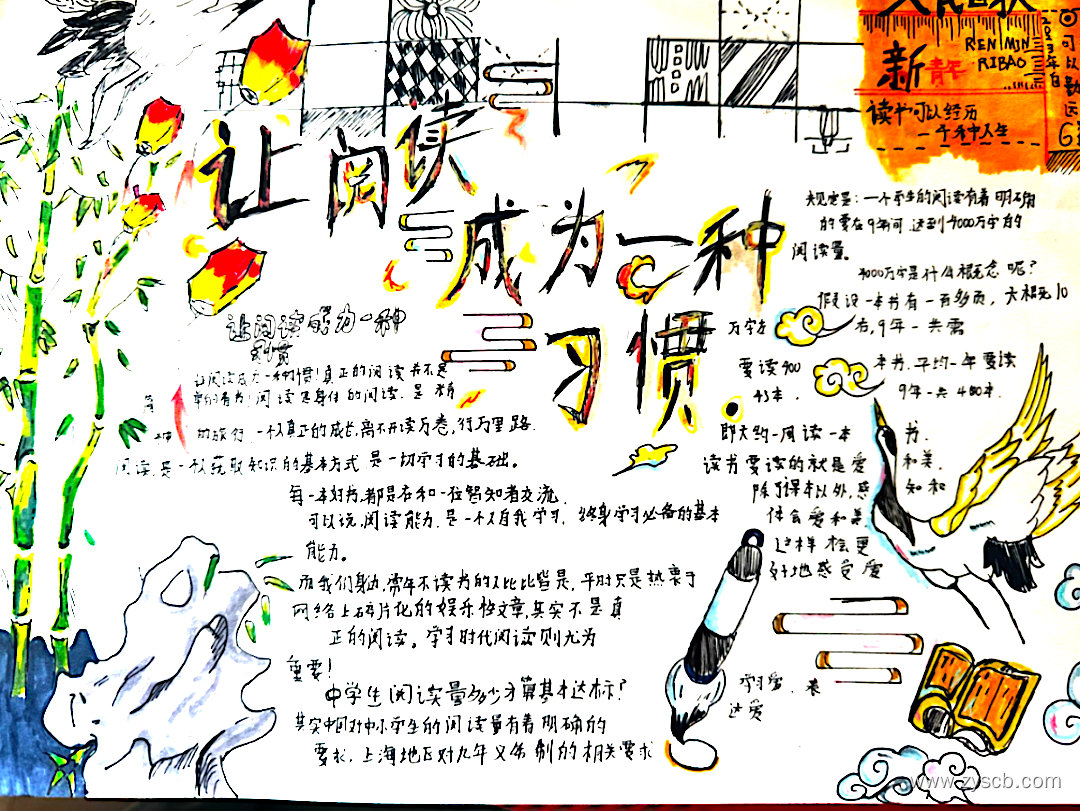 让阅读
成为一种
习惯
人民日报
新青年
REN MIN
RIBAO
读书可以经历
一千种人生
让阅读成为一种
习惯
让阅读成为一种习惯!真正的阅读并不是
单的看书!阅读是身体的阅读,是精
的旅行,一个人真正的成长,离不开读万卷,行万里路.
阅读是一个人获取知识的基本方式,是一切学习的基础。
每一本好书,都是在和一位智知者交流.
可以说,阅读能力,是一个人自我学习,终身学习必备的基本
能力。
而我们身边,常年不读书的人比比皆是,平时只是热衷于
网络上碎片化的娱乐性文章,其实不是真
正的阅读。学习时代阅读则尤为
重要!
中学生阅读量多少才算基本达标?
其实中国对中小学生的阅读量有着明确的
要求,上海地区对九年义务制的相关要求
规定是:一个学生的阅读有着明确
的要在9年间,达到4000万字的
阅读量。
4000万字是什么概念呢?
假设一本书有一百多页,大概10
万字左右,9年一共需
要读400本书.平均一年要读
45本.9年一共400本.
即大约一周读一本书.
读书要读的就是爱和美.
除了课本以外,感知和
体会爱和美
这样松更
好地感受爱
学习爱.表
达爱
www.zyscb.com